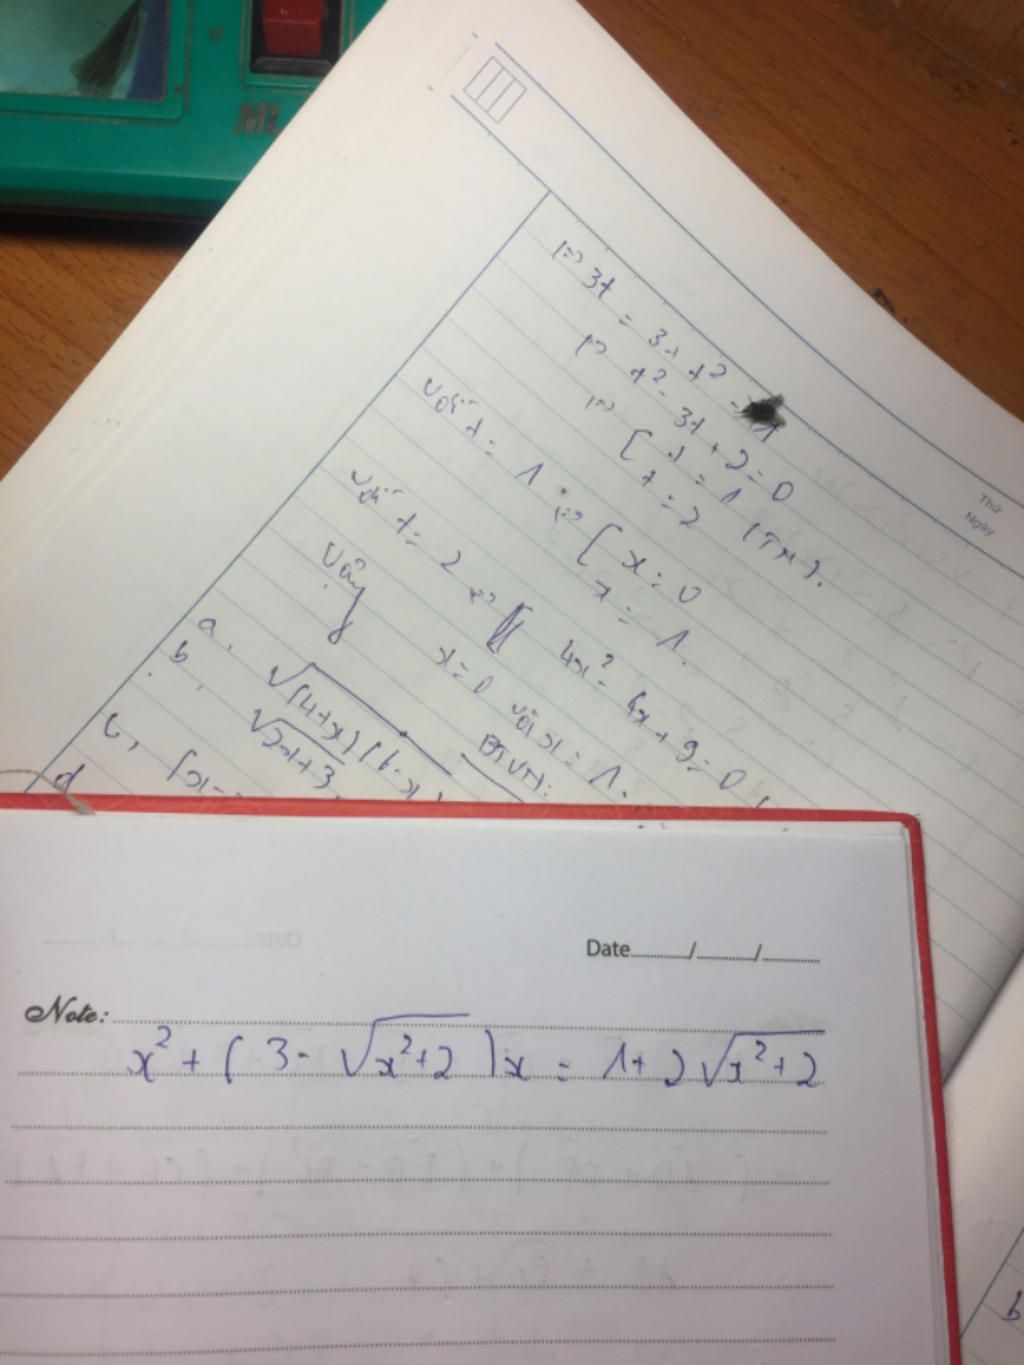 ML
Thứ
Ngày
|=> 3t = 3 + t² - 1
|=> t² - 3t + 2 = 0
|=> [ t = 1
t = 2 (TM).
với t = 1 <=> [ x = 0
x = 1.
với t = 2 <=> 4x² - 4x + 9 = 0
Vậy x = 0 với x = 1.
BTVN:
a, √(4+x)(6-x)
b, √2x+3
c, (x-
d
Date....../....../......
Note:
x² + (3 - √x²+2)x = 1 + 2√x²+2
b